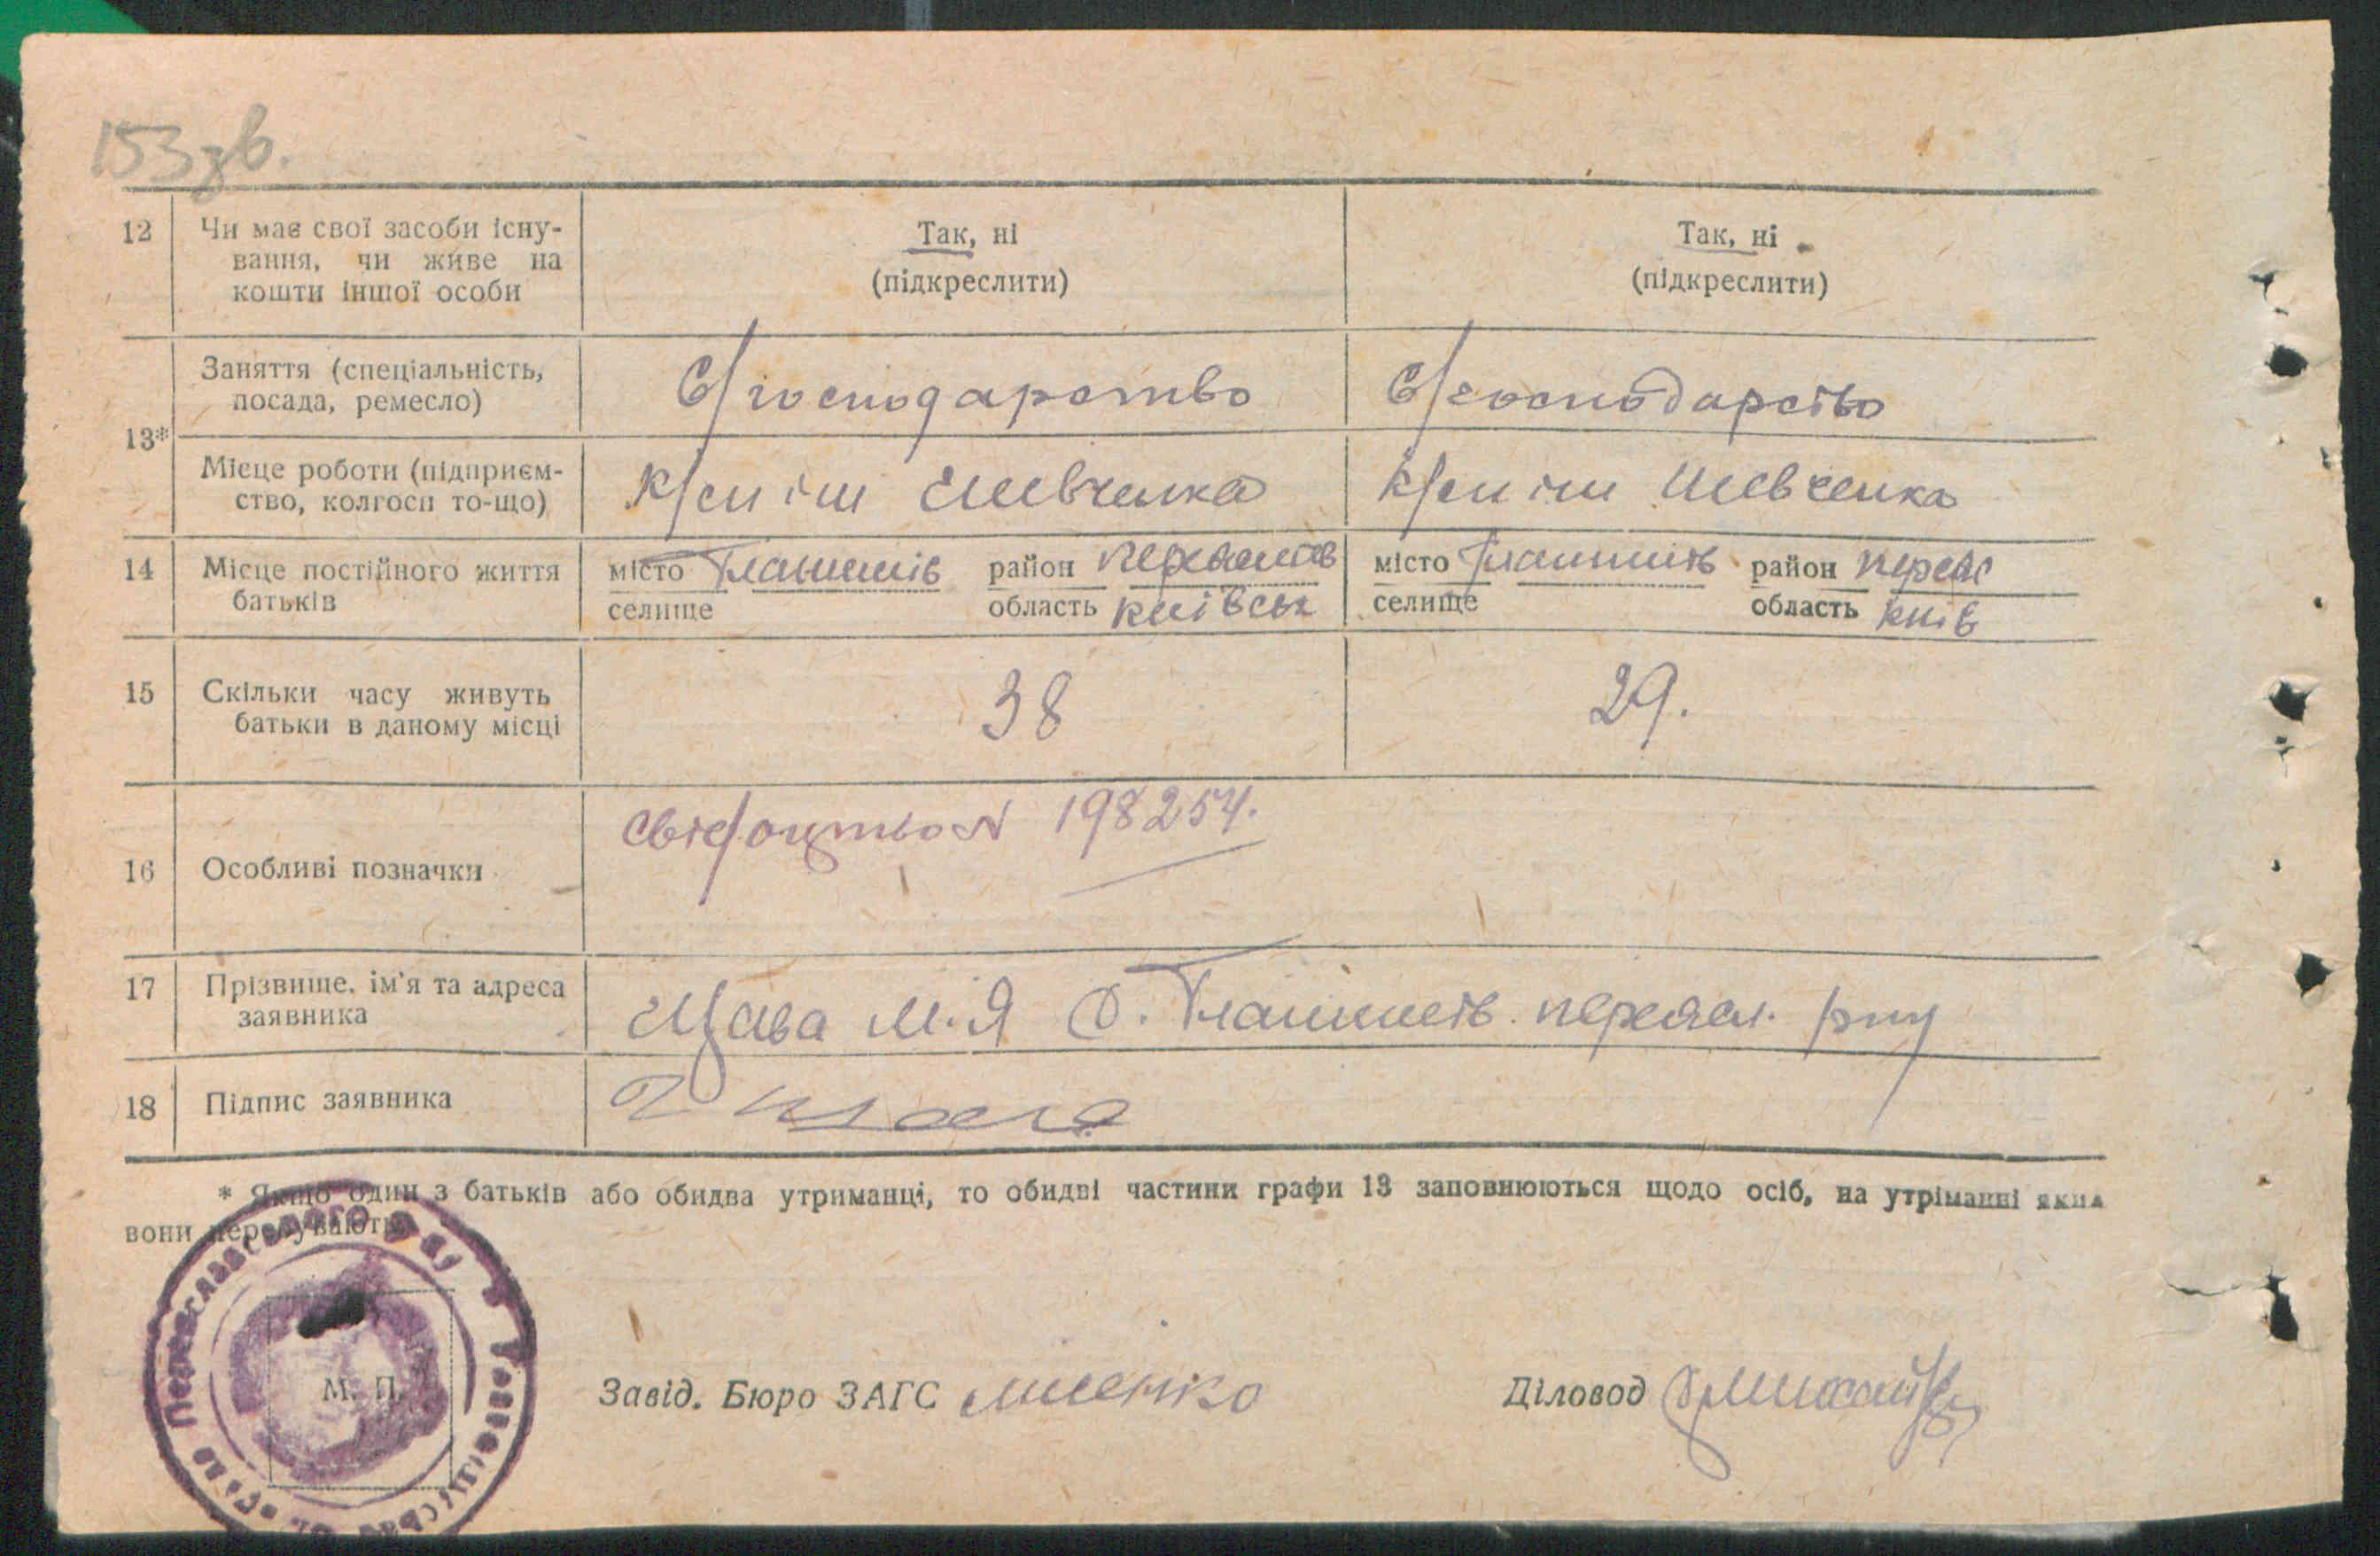 153 зв.
12 Чи має свої засоби існу- Так, ні Так, ні
вання, чи живе на (підкреслити) (підкреслити)
кошти іншої особи
13* Заняття (спеціальність, С/господарство С/господарство
посада, ремесло)
Місце роботи (підприєм- К/сп ім Шевченка К/сп ім Шевченка
ство, колгосп то-що)
14 Місце постійного життя місто район місто район
батьків селище область київськ селище область київ
15 Скільки часу живуть 38 29.
батьки в даному місці
16 Особливі позначки Свідоцтво N 198254.
17 Прізвище, ім'я та адреса М.Я С. р-ну
заявника
18 Підпис заявника
* Якщо один з батьків або обидва утриманці, то обидві частини графи 13 заповнюються щодо осіб, на утріманні яких
вони перебувають.
М. П.
Завід. Бюро ЗАГС Діловод